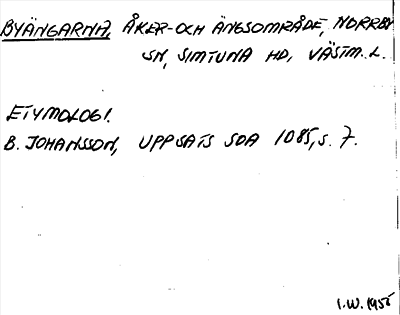 BYÄNGARNA, ÅKER- OCH ÄNGSOMRÅDE, NORRBY
SN, SIMTUNA HD, VÄSTM. L.
ETYMOLOGI.
B. JOHANSSON, UPPSATS SOA 1085, s. 7.
I.W. 1955